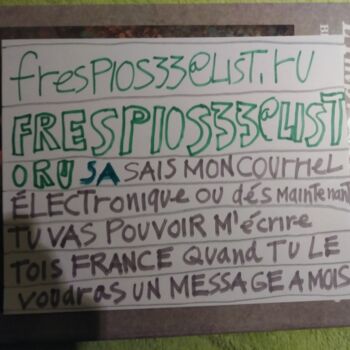 fresPIOS33@LIST.ru
FRESPIOS33@LIST
ORU SA SAIS MON COURRIEL
ÉLECTRONIQUE OU DÉS MAINTENANT
TU VAS POUVOIR M'ÉCRIRE
TOIS FRANCE Quand TU LE
VOUDRAS UN MESSAGE A MOIS